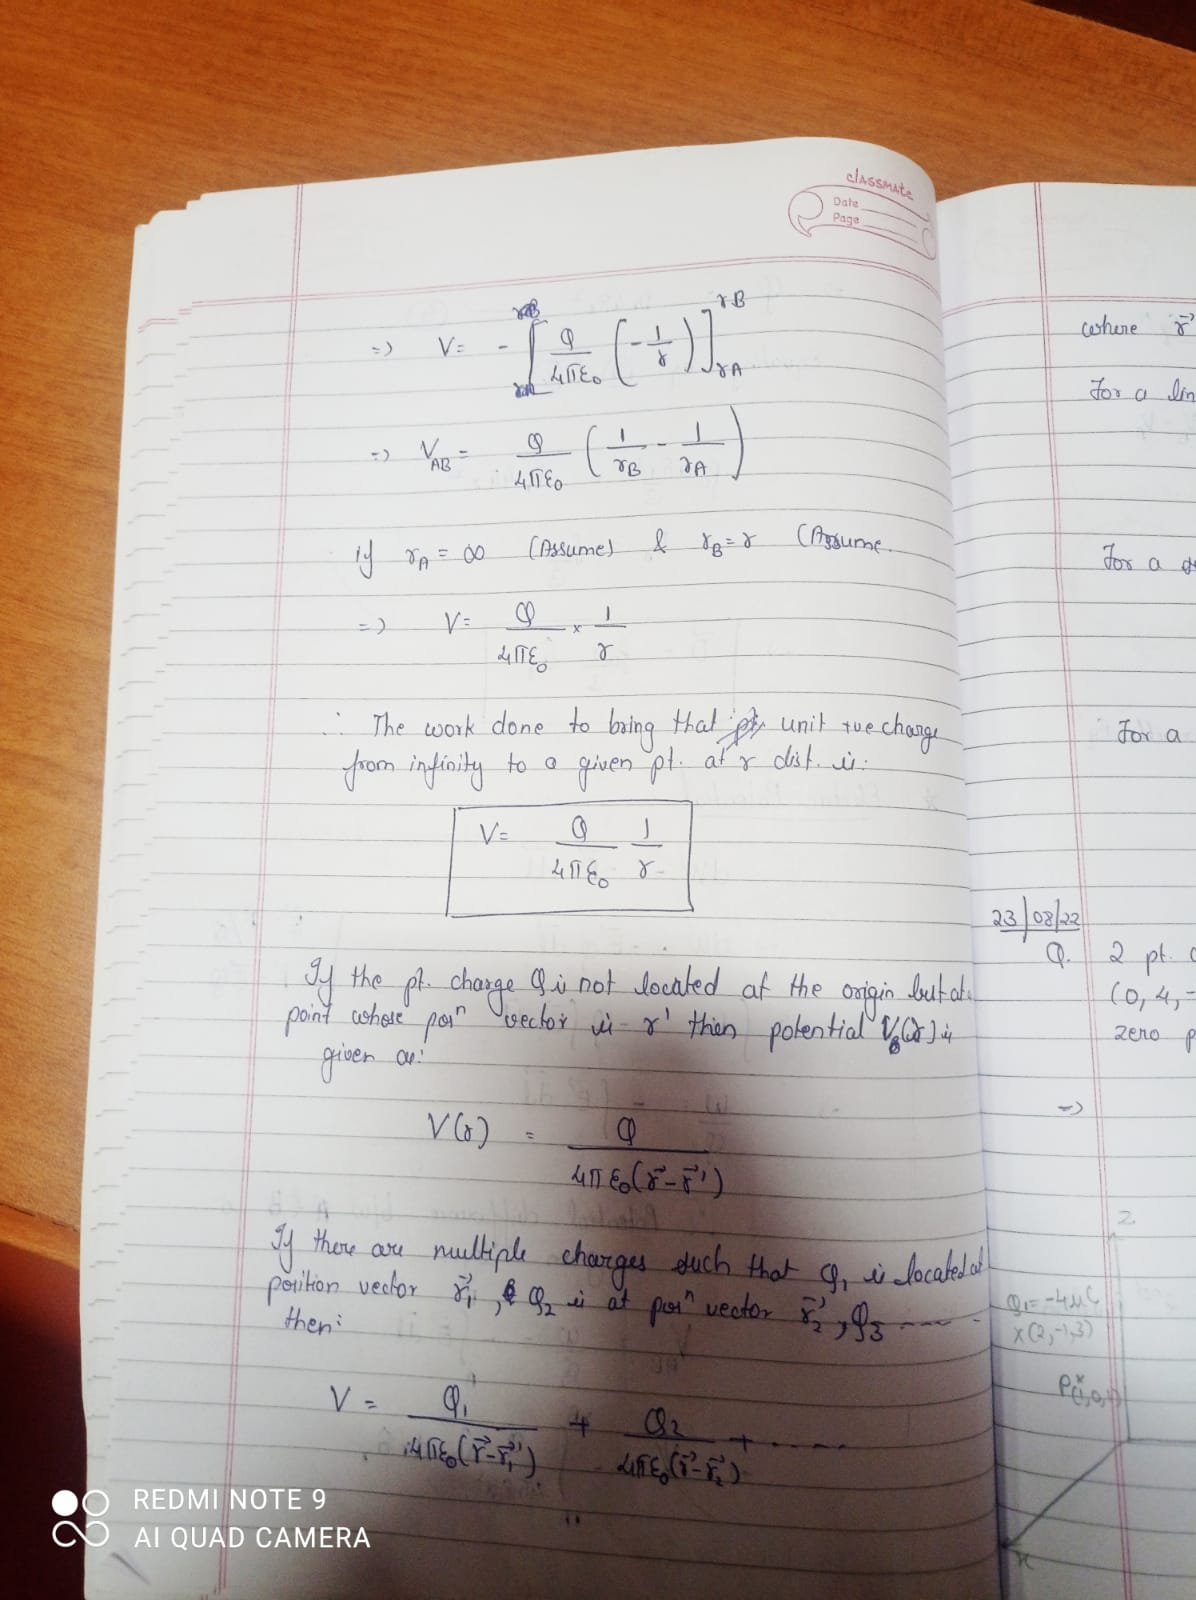 classmate
Date
Page
=> V = - [ Q/4πε₀ ( - 1/r ) ] rB rA
=> V_AB = Q/4πε₀ ( 1/r_B - 1/r_A )
if r_A = ∞ (Assume) & r_B = r (Assume.
=> V = Q/4πε₀ × 1/r
∴ The work done to bring that unit +ve charge
from infinity to a given pt. at r dist. is:
V = Q/4πε₀ 1/r
If the pt. charge Q is not located at the origin but at
point whose posⁿ vector is r' then potential V(r) is
given as:
V(r) = Q/4πε₀(r⃗ - r⃗')
If there are multiple charges such that Q₁ is located at
position vector r⃗₁', Q₂ is at posⁿ vector r⃗₂', Q₃ -----
then:
V = Q₁/4πε₀(r⃗ - r⃗₁') + Q₂/4πε₀(r⃗ - r⃗₂') + -----
where r⃗'
For a lin
For a
For a
23/08/22
Q. 2 pt. c
(0, 4, -
zero p
=>
z
Q₁ = -4μC
x(2,-1,3)
P(1,0,
x
REDMI NOTE 9
AI QUAD CAMERA